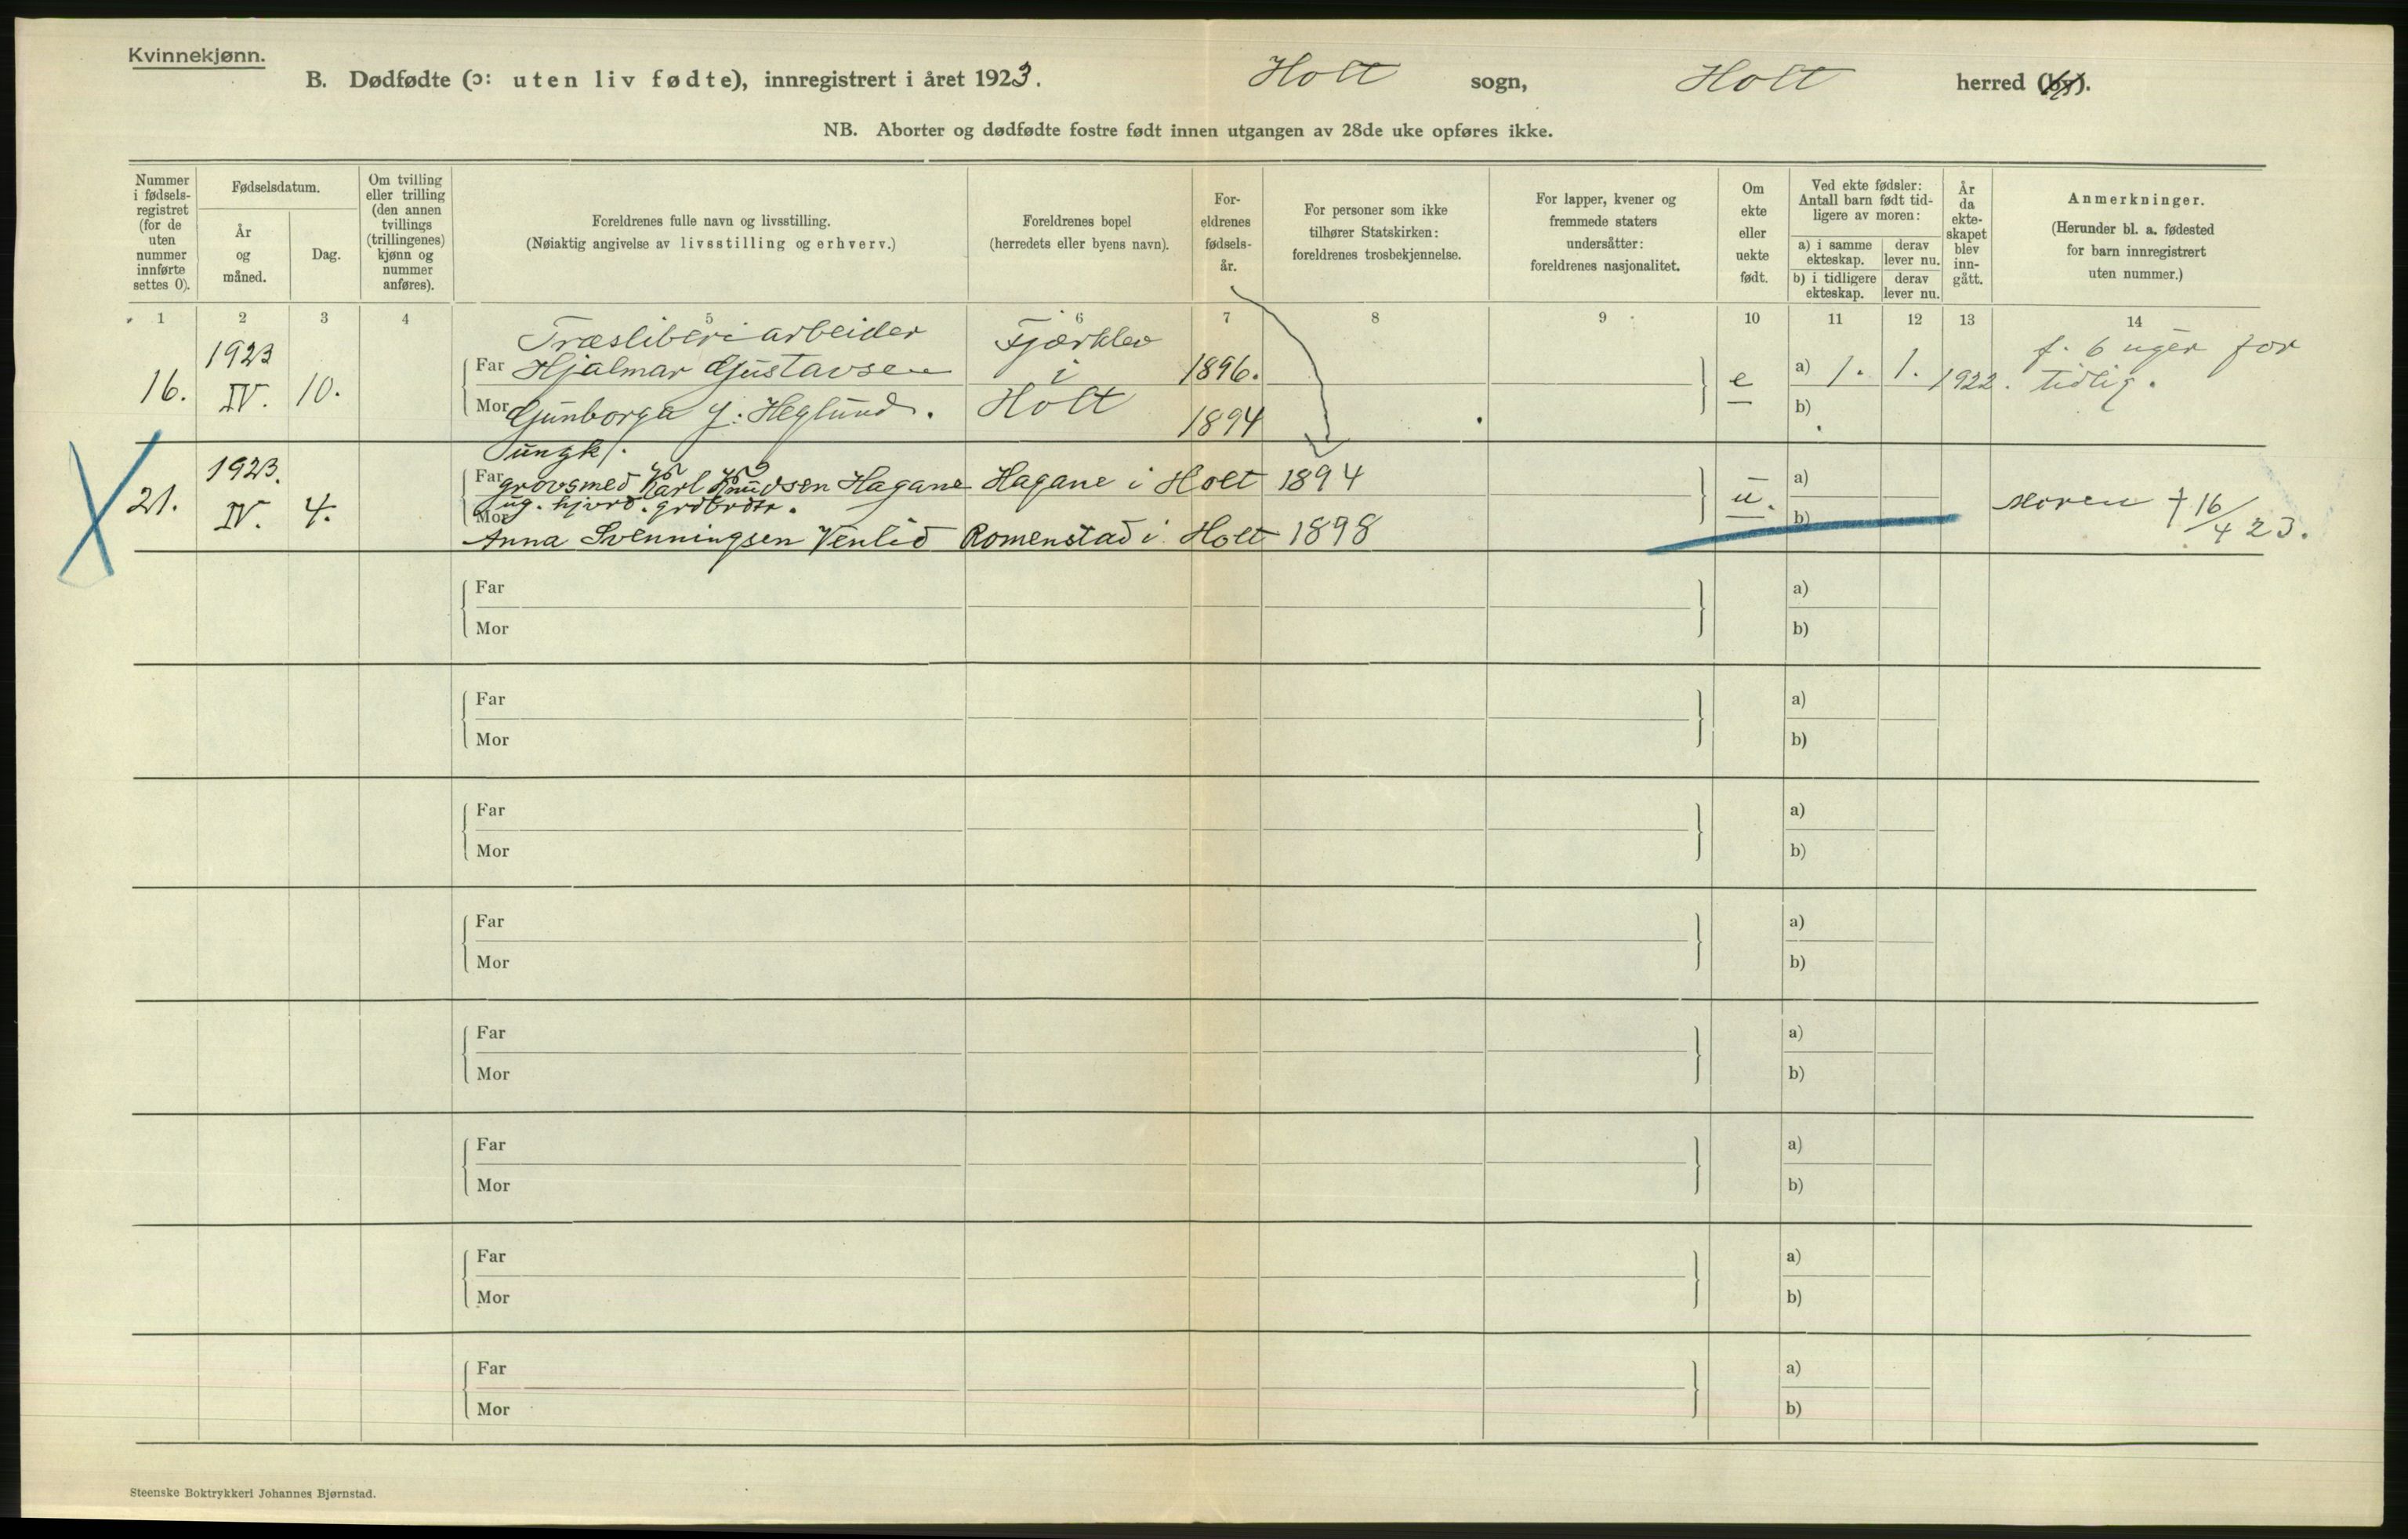 Kvinnekjønn.
B. Dødfødte (ɔ: uten liv fødte), innregistrert i året 1923. Holt sogn, Holt herred (by).
NB. Aborter og dødfødte fostre født innen utgangen av 28de uke opføres ikke.
Nummer i fødsels-registret (for de uten nummer innførte settes 0).
Fødselsdatum.
År og måned.
Dag.
Om tvilling eller trilling (den annen tvillings (trillingenes) kjønn og nummer anføres).
Foreldrenes fulle navn og livsstilling.
(Nøiaktig angivelse av livsstilling og erhverv.)
Foreldrenes bopel
(herredets eller byens navn).
For-eldrenes fødsels-år.
For personer som ikke tilhører Statskirken: foreldrenes trosbekjennelse.
For lapper, kvener og fremmede staters undersåtter: foreldrenes nasjonalitet.
Om ekte eller uekte født.
Ved ekte fødsler: Antall barn født tid-ligere av moren:
a) i samme ekteskap.
derav lever nu.
b) i tidligere ekteskap.
derav lever nu.
År da ekte-skapet blev inn-gått.
Anmerkninger.
(Herunder bl. a. fødested for barn innregistrert uten nummer.)
1 2 3 4 5 6 7 8 9 10 11 12 13 14
16. 1923 IV. 10.
Træsliberiarbeider
Far Hjalmar Gustavsen
Mor Gunborga f. Heglund.
i
Holt
1896.
1894
e
a) 1. 1. 1922.
b)
f. 6 uger for
tidlig.
21. 1923. IV. 4.
Ungk.
Far grovsmed Karl Knudsen Hagane Hagane i Holt 1894
Mor ug.
Anna Svenningsen Venlid Romenstad i Holt 1898
u.
a)
b)
Moren † 16/4 23.
Far
Mor
a)
b)
Far
Mor
a)
b)
Far
Mor
a)
b)
Far
Mor
a)
b)
Far
Mor
a)
b)
Far
Mor
a)
b)
Far
Mor
a)
b)
Far
Mor
a)
b)
Steenske Boktrykkeri Johannes Bjørnstad.